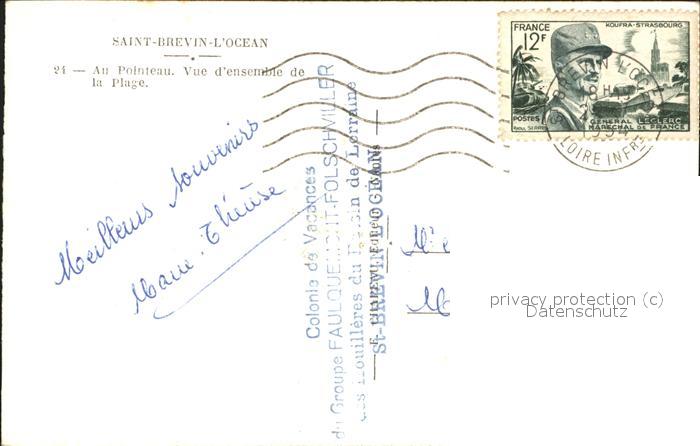 SAINT-BREVIN-L'OCEAN
24 — Au Pointeau. Vue d'ensemble de
la Plage.
Meilleurs Souvenirs
Marie. Thérèse
Colonie de Vacances
du Groupe FAULQUEMONT-FOLSCHVILLER
des Houillères du Bassin de Lorraine
St-BREVIN-L'OCEAN
FRANCE
KOUFRA-STRASBOURG
12F
POSTES
GÉNÉRAL LECLERC
MARÉCHAL DE FRANCE
RAOUL SERRES
ST BREVIN L'OCEAN
1954
LOIRE INFRE
privacy protection (c)
Datenschutz